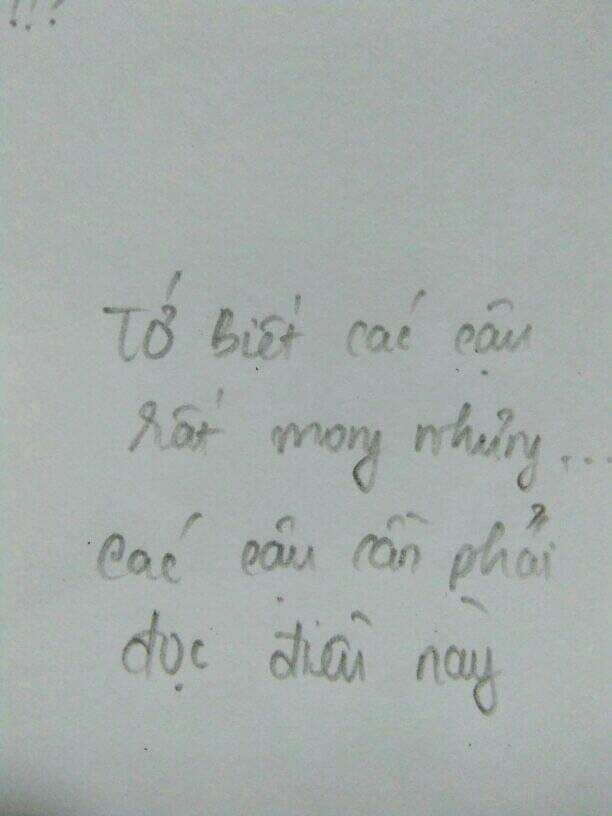 !!!
Tớ biết các cậu
rất mong nhưng...
các cậu cần phải
đọc điều này